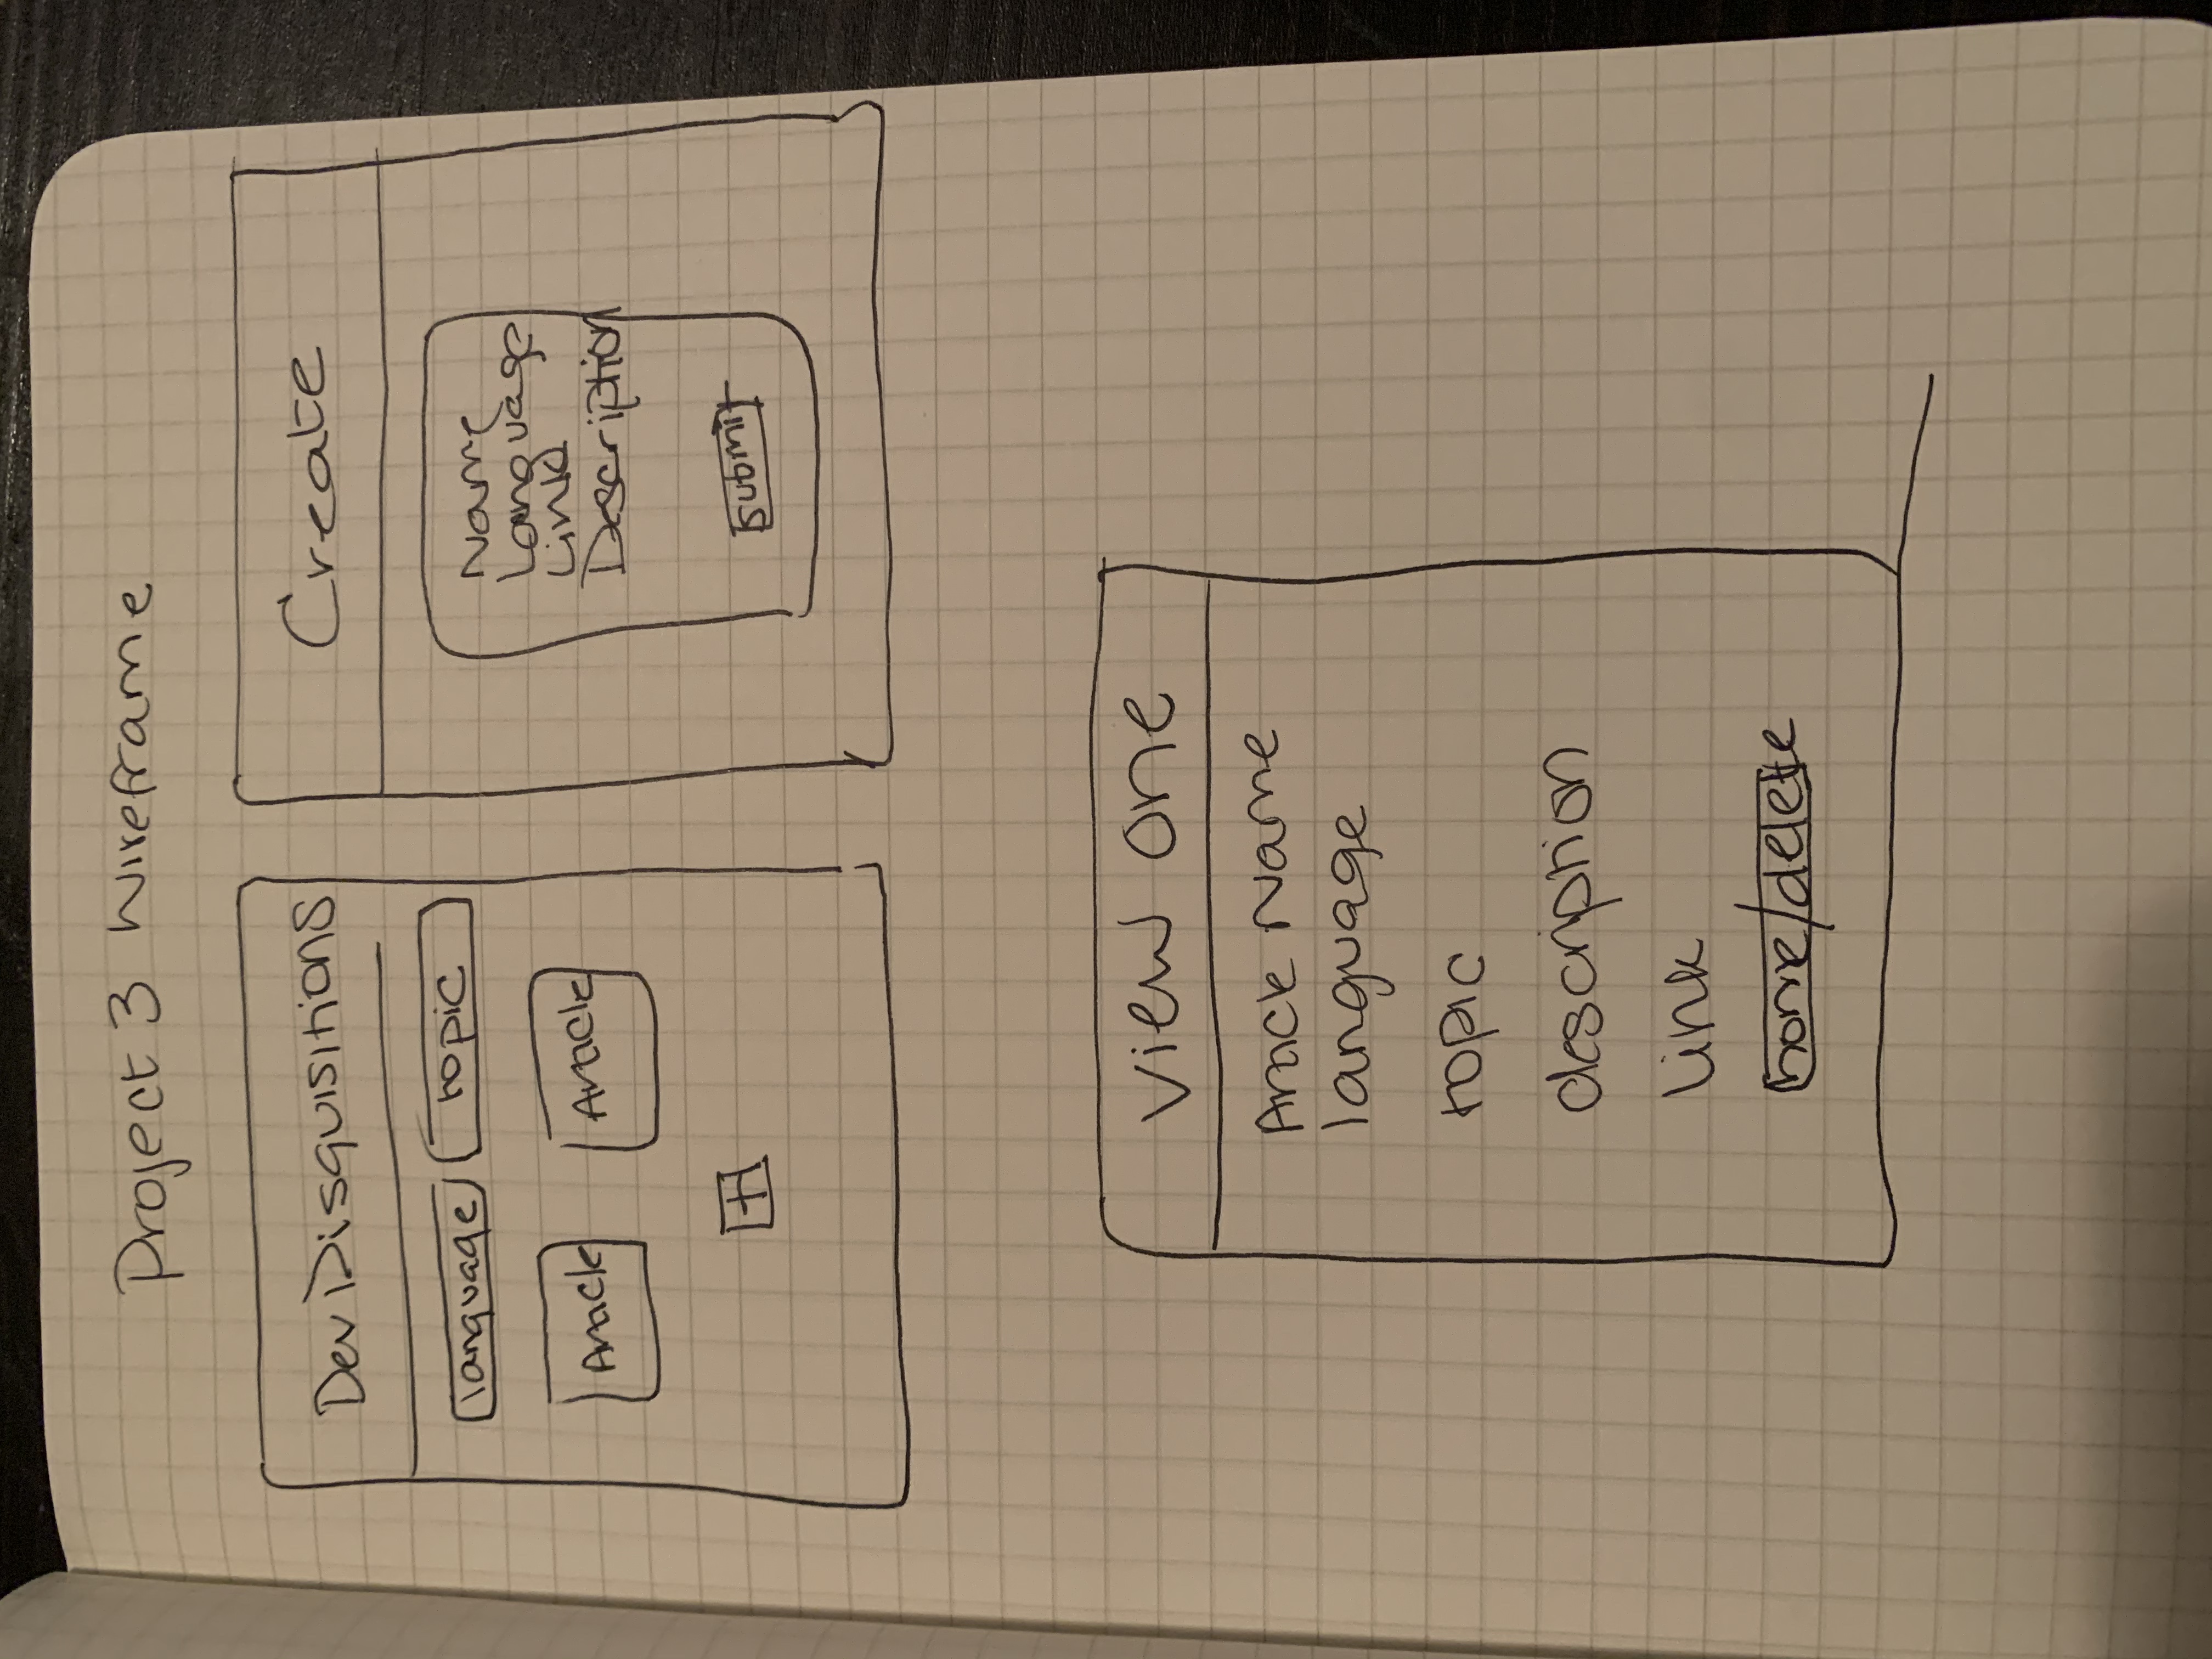 Project 3 Wireframe
Dev Disquisitions
language topic
Article Article
+
Create
Name
Language
Link
Description
submit
View One
Article Name
language
topic
description
link
home/delete